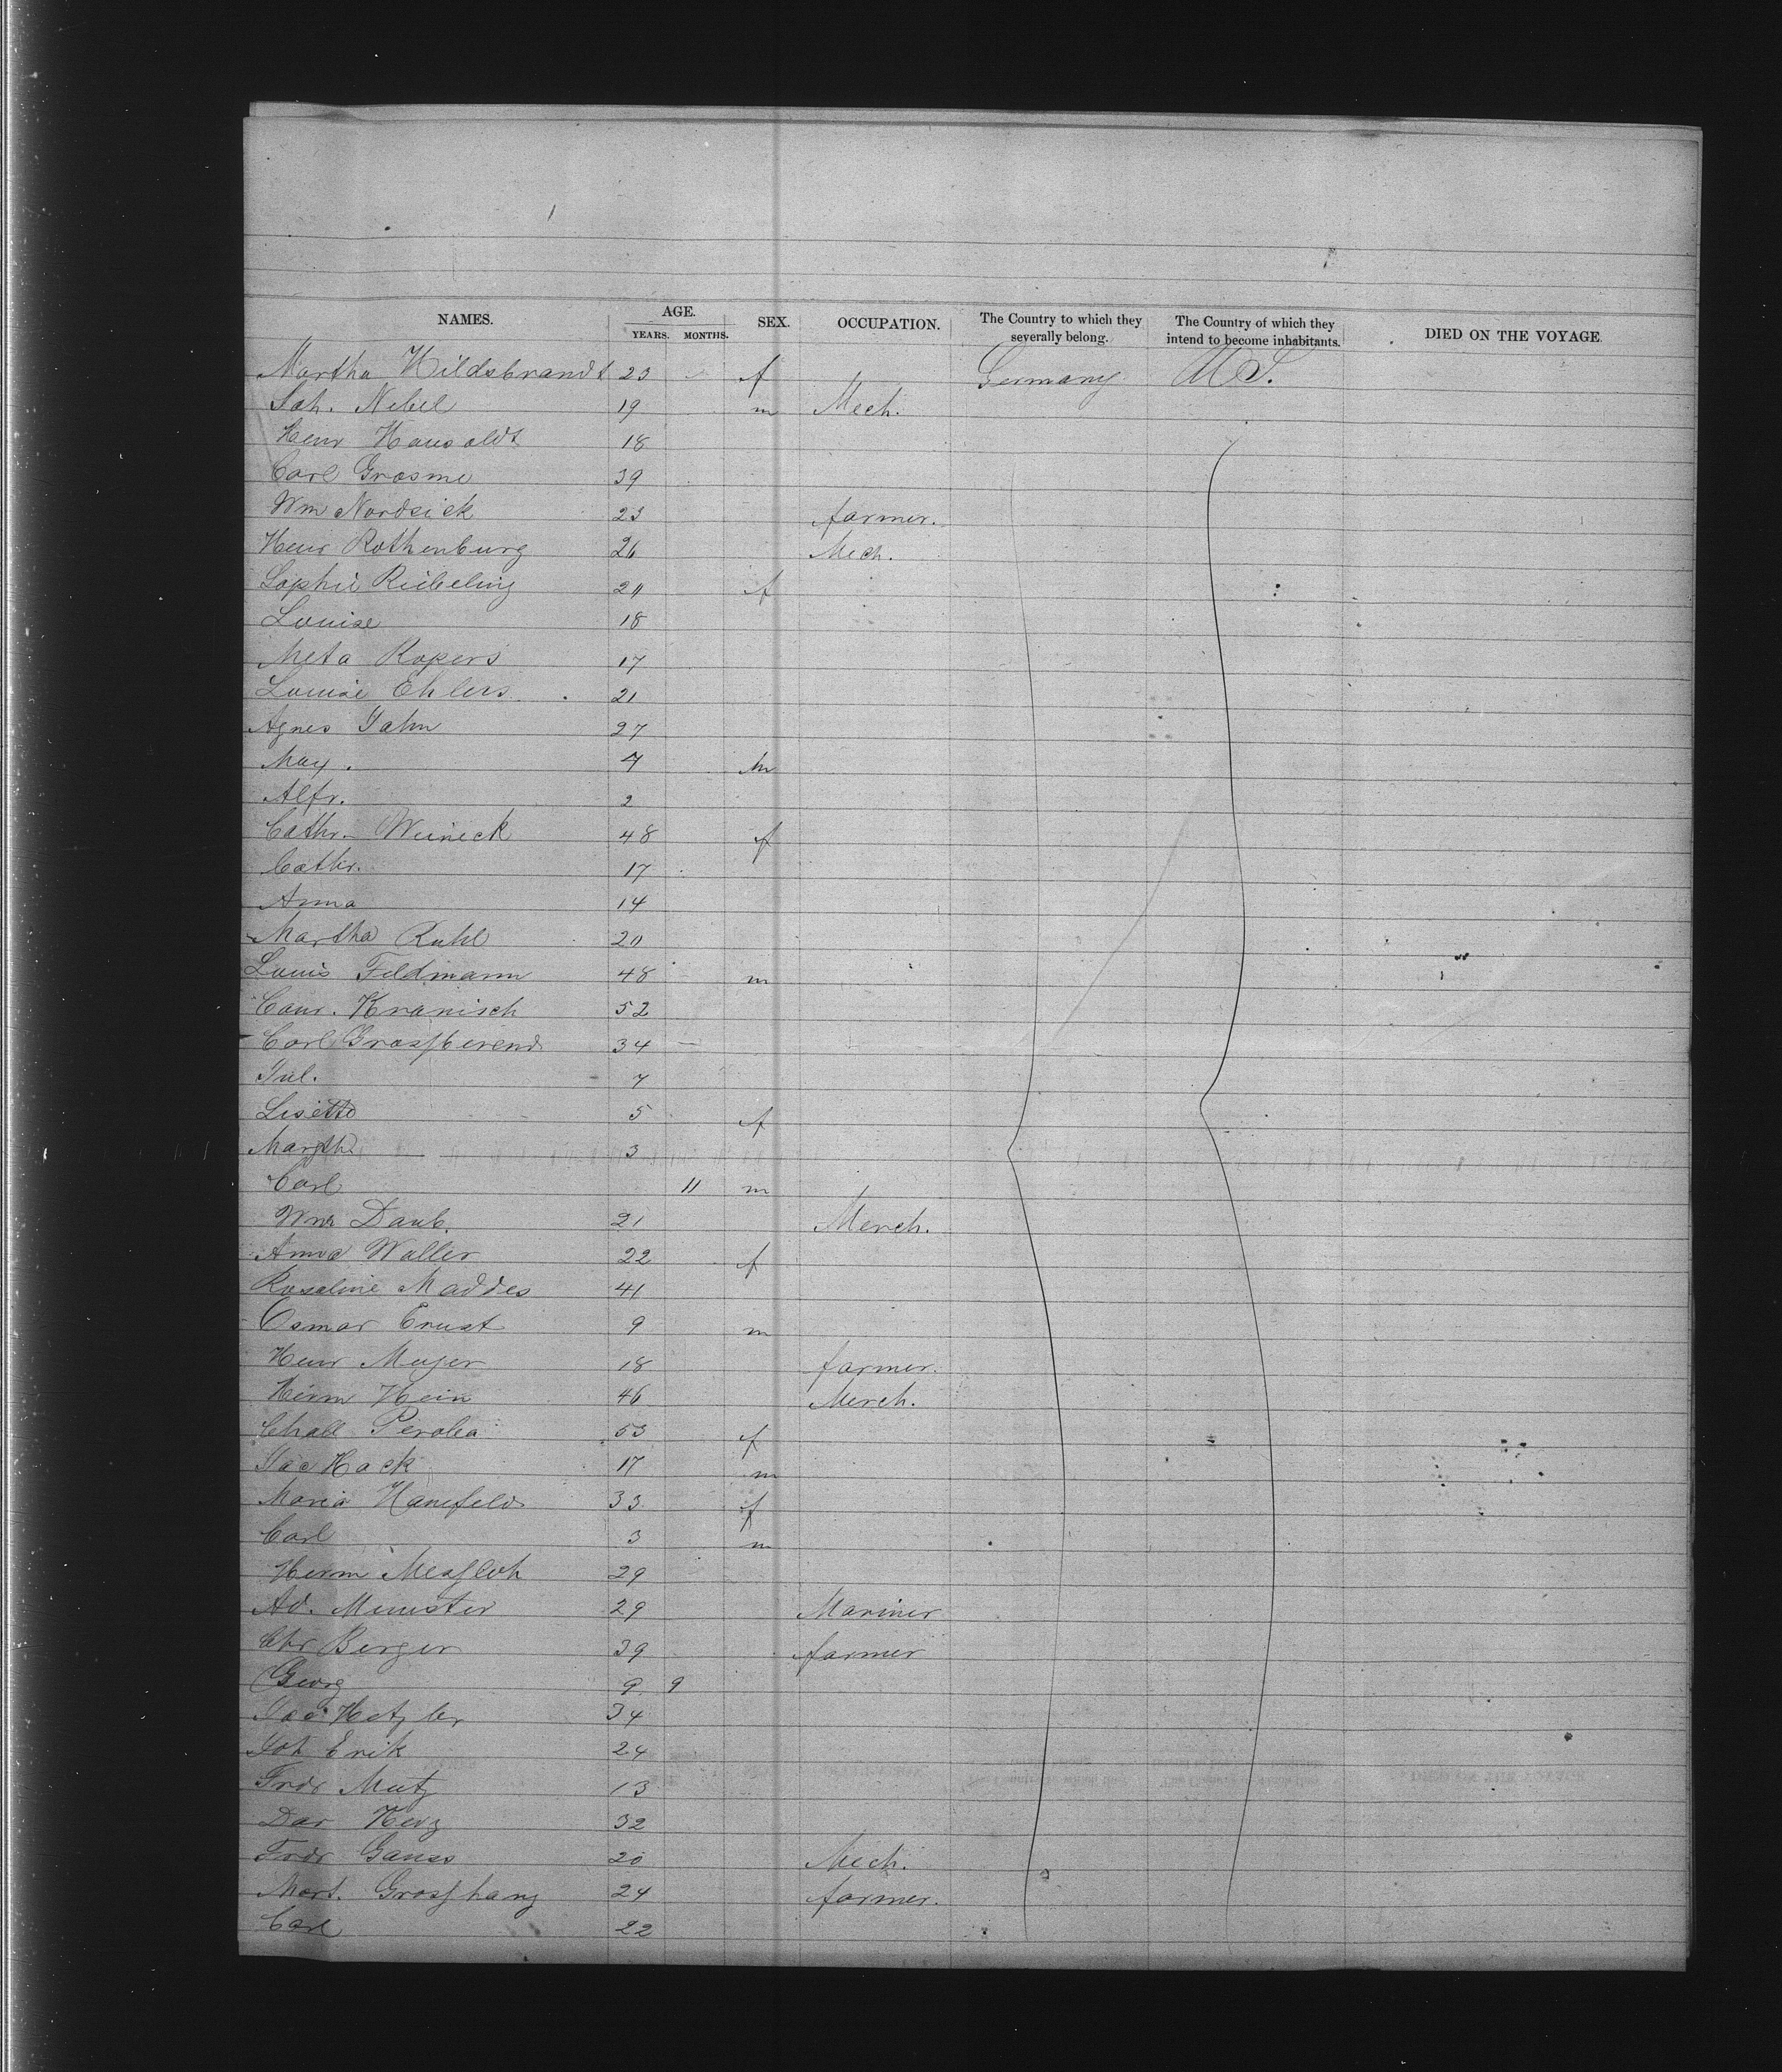 NAMES. AGE. SEX. OCCUPATION. The Country to which they severally belong. The Country of which they intend to become inhabitants. DIED ON THE VOYAGE.
YEARS. MONTHS.
Martha Hildsbrandt 23 f Germany U S.
Joh. Nebel 19 m Mech.
Henr Hausoldt 18
Carl Grosme 39
Wm Nordsick 23 farmer.
Henr Rothenburg 26 Mech.
Sophie Riebeling 20 f
Louise 18
Meta Ropers 17
Louise Ehlers 21
Agnes Jahn 27
Max. 4 m
Alfr. 2
Cathr. Weineck 48 f
Cathr. 17
Anna 14
Martha Ruhl 20
Louis Feldmann 48 m
Conr. Kranisch 52
Carl Grossberend 34
Jul. 7
Lisette 5 f
Martha 3
Carl 11 m
Wm Daub. 21 Merch.
Anna Waller 22 f
Rosaline Maddes 41
Osmar Ernst 9 m
Henr Meyer 18 farmer.
Herm Hein 46 Merch.
Perolia 53 f
Jac Hack 17 m
Maria Hanefeld 33 f
Carl 3 m
Herm Messloh 29
Ad. Munster 29 Mariner
Chr Berger 39 farmer
Georg 9 9
Jac Hetzler 34
Joh Erik 24
Fridr Mutz 13
Dav Herz 32
Fridr Gauss 20 Mech.
Mart. Grosshang 24 farmer.
Carl 22